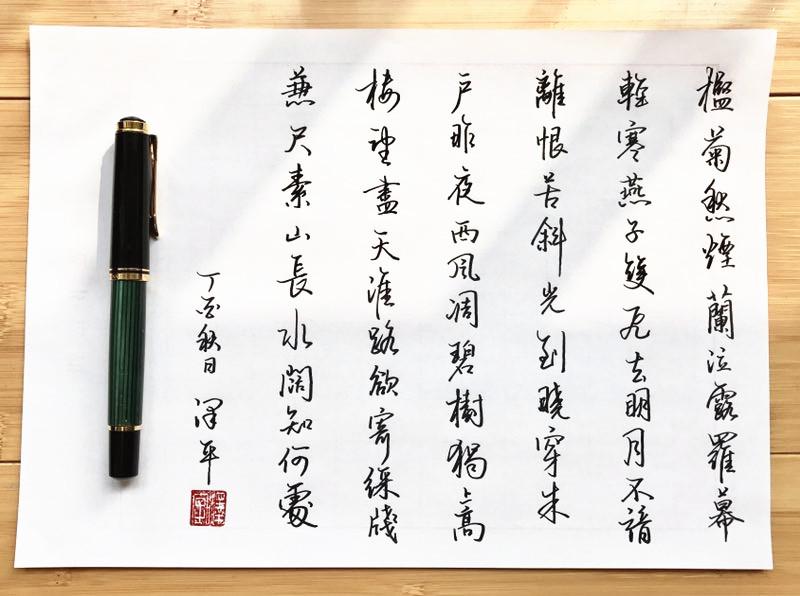 檻菊愁煙蘭泣露羅幕
輕寒燕子雙飛去明月不諳
離恨苦斜光到曉穿朱
戶昨夜西風凋碧樹獨上高
樓望盡天涯路欲寄綵牋
兼尺素山長水闊知何處
丁酉秋日 澤平